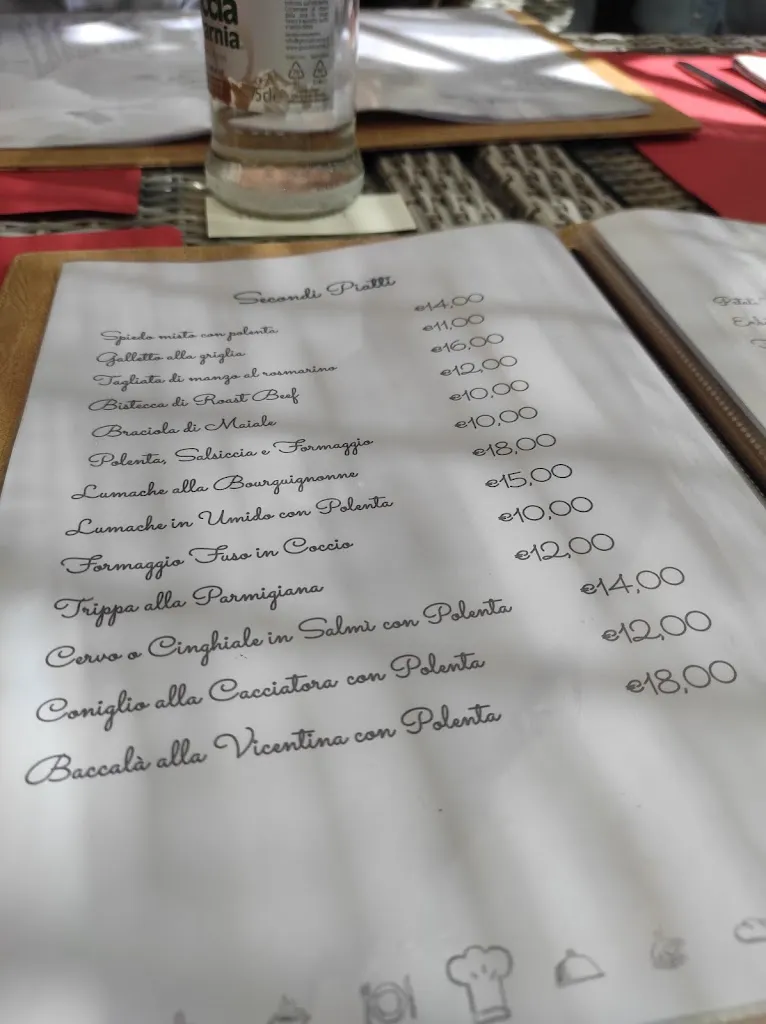 oda
arnia
75cl
Secondi Piatti
Spiedo misto con polenta €14,00
Galletto alla griglia €11,00
Tagliata di manzo al rosmarino €16,00
Bistecca di Roast Beef €12,00
Braciola di Maiale €10,00
Polenta, Salsiccia e Formaggio €10,00
Lumache alla Bourguignonne €18,00
Lumache in Umido con Polenta €15,00
Formaggio Fuso in Coccio €10,00
Trippa alla Parmigiana €12,00
Cervo o Cinghiale in Salmì con Polenta €14,00
Coniglio alla Cacciatora con Polenta €12,00
Baccalà alla Vicentina con Polenta €18,00